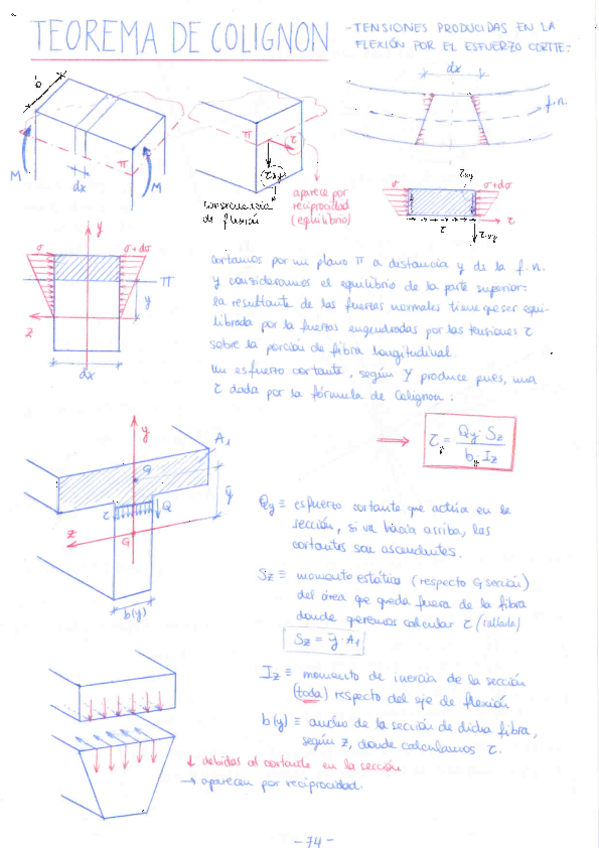 TEOREMA DE COLIGNON
- TENSIONES PRODUCIDAS EN LA
FLEXIÓN POR EL ESFUERZO CORTE:
dx
f.n.
b
π
M
dx
M
π
τ
τxy
consecuencia
de flexión
aparece por
reciprocidad
(equilibrio)
τxy
σ
σ+dσ
τ
τ
τxy
y
σ
σ+dσ
π
y
z
dx
cortamos por un plano π a distancia y de la f.n.
y consideramos el equilibrio de la parte superior:
la resultante de las fuerzas normales tiene que ser equi-
librada por la fuerzas engendradas por las tensiones τ
sobre la porción de fibra longitudinal.
Un esfuerzo cortante, según Y produce pues, una
τ dada por la fórmula de Colignon:
⟹ τy = Qy · Sz / by Iz
y
A1
G
τ
Q
ȳ
z
G
b(y)
Qy ≡ esfuerzo cortante que actúa en la
sección, si va hacia arriba, las
cortantes son ascendentes.
Sz ≡ momento estático (respecto G sección)
del área que queda fuera de la fibra
donde queremos calcular τ (rallada)
Sz = ȳ · A1
Iz ≡ momento de inercia de la sección
(toda) respecto del eje de flexión
b(y) ≡ ancho de la sección de dicha fibra,
según z, donde calculamos τ.
↓ debidas al cortante en la sección
→ aparecen por reciprocidad.
- 74 -